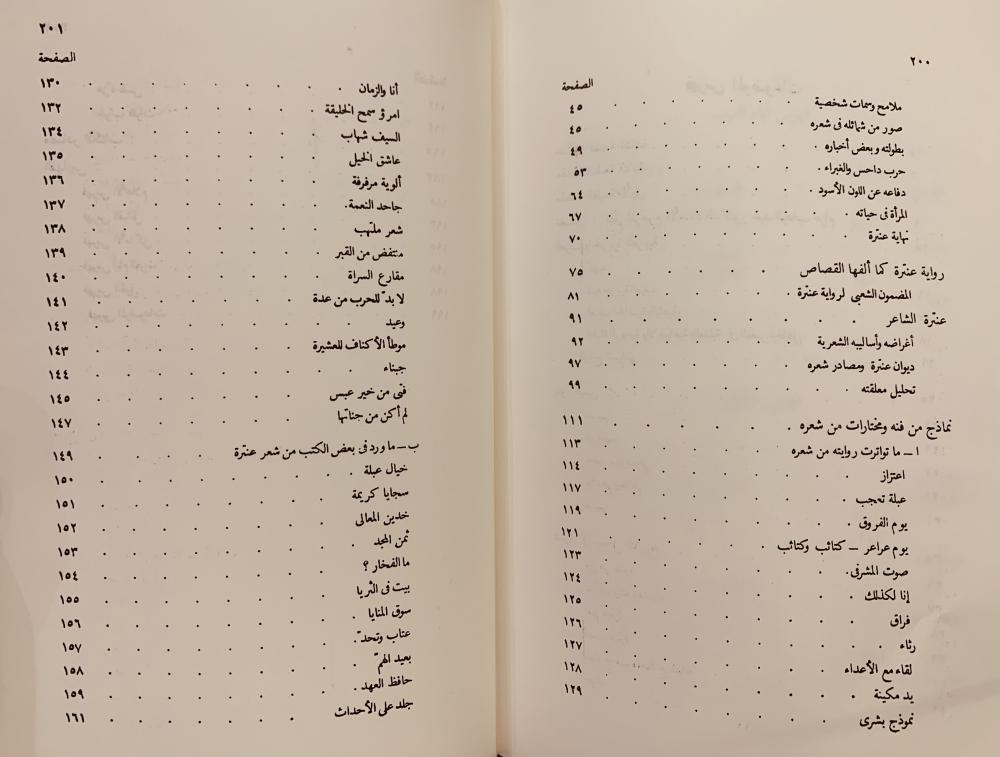 ٢٠٠
الصفحة
ملامح وسمات شخصية . . . . . ٤٥
صور من شمائله فى شعره . . . . . ٤٥
بطولته وبعض أخباره . . . . . ٤٩
حرب داحس والغبراء . . . . . ٥٣
دفاعه عن اللون الأسود . . . . . ٦٤
المرأة فى حياته . . . . . ٦٧
نهاية عنترة . . . . . ٧٠
رواية عنترة كما ألفها القصاص . . . . . ٧٥
المضمون الشعبى لرواية عنترة . . . . . ٨١
عنترة الشاعر . . . . . ٩١
أغراضه وأساليبه الشعرية . . . . . ٩٢
ديوان عنترة ومصادر شعره . . . . . ٩٧
تحليل معلقته . . . . . ٩٩
نماذج من فنه ومختارات من شعره . . . . . ١١١
ا – ما تواترت روايته من شعره . . . . . ١١٣
اعتزاز . . . . . ١١٤
عبلة تعجب . . . . . ١١٧
يوم الفروق . . . . . ١١٩
يوم عراعر – كتائب وكتائب . . . . . ١٢١
صوت المشرفى . . . . . ١٢٣
إنا لكذلك . . . . . ١٢٤
فراق . . . . . ١٢٥
رثاء . . . . . ١٢٦
لقاء مع الأعداء . . . . . ١٢٧
يد مكينة . . . . . ١٢٨
نموذج بشرى . . . . . ١٢٩
٢٠١
الصفحة
أنا والزمان . . . . . ١٣٠
امرؤ سمح الخليقة . . . . . ١٣٢
السيف شهاب . . . . . ١٣٤
عاشق الخيل . . . . . ١٣٥
ألوية مرفرفة . . . . . ١٣٦
جاحد النعمة . . . . . ١٣٧
شعر ملتهب . . . . . ١٣٨
منتفض من القبر . . . . . ١٣٩
مقارع السراة . . . . . ١٤٠
لا بدّ للحرب من عدة . . . . . ١٤١
وعيد . . . . . ١٤٢
موطأ الأكناف للعشيرة . . . . . ١٤٣
جبناء . . . . . ١٤٤
فتى من خير عبس . . . . . ١٤٥
لم أكن من جناتها . . . . . ١٤٧
ب – ما ورد فى بعض الكتب من شعر عنترة . . . . . ١٤٩
خيال عبلة . . . . . ١٥٠
سجايا كريمة . . . . . ١٥١
خدين المعالى . . . . . ١٥٢
ثمن المجد . . . . . ١٥٣
ما الفخار ؟ . . . . . ١٥٤
بيت فى الثريا . . . . . ١٥٥
سوق المنايا . . . . . ١٥٦
عتاب وتحدّ . . . . . ١٥٧
بعيد الهمّ . . . . . ١٥٨
حافظ العهد . . . . . ١٥٩
جلد على الأحداث . . . . . ١٦١